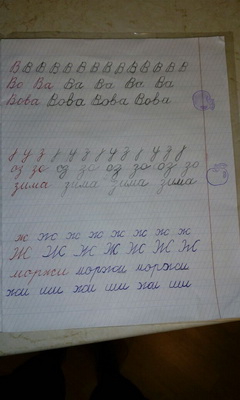 В В В В В В В В В В В В В
Во Ва Ва Ва Ва Ва
Вова Вова Вова Вова
оз зо оз зо оз зо оз зо
зима зима зима зима
ж ж ж ж ж ж ж ж
Ж Ж Ж Ж Ж Ж Ж Ж
моржи моржи моржи
жи ши жи ши жи ши